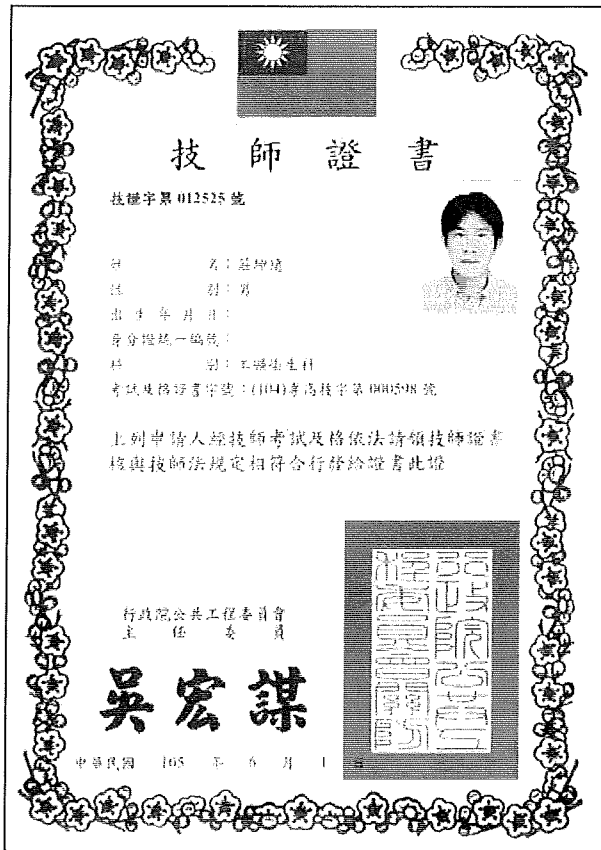 技師證書
技證字第 012525 號
姓名：莊
性別：男
出生年月日：
身分證統一編號：
科別：工礦衛生科
考試及格證書字號：(104)專高技字第 000598 號
上列申請人經技師考試及格依法請領技師證書
核與技師法規定相符合行發給證書此證
行政院公共工程委員會
主任委員
吳宏謀
中華民國 105 年 6 月 1 日